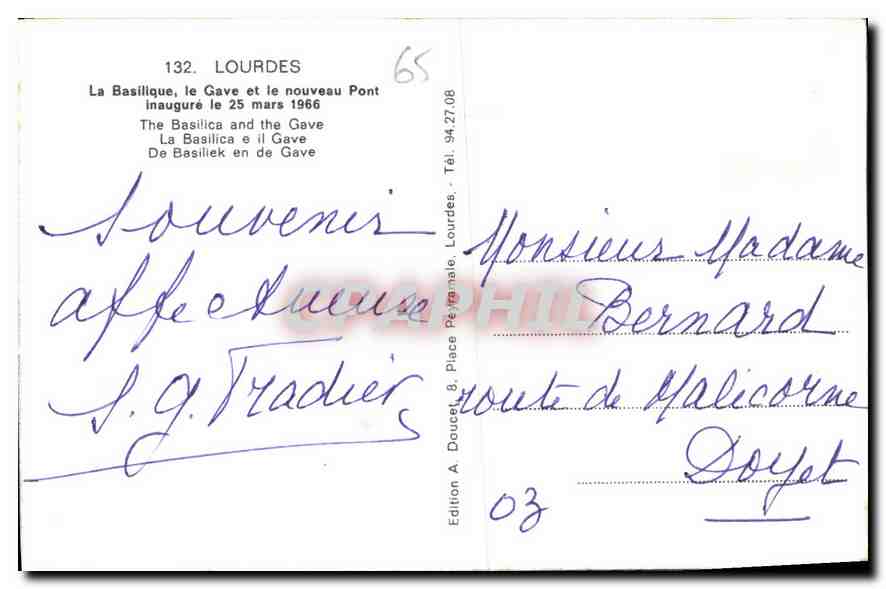 132. LOURDES
La Basilique, le Gave et le nouveau Pont
inauguré le 25 mars 1966
The Basilica and the Gave
La Basilica e il Gave
De Basiliek en de Gave
65
Souvenir
affectueuse
S. G. Tradier
Edition A. Doucet, 8, Place Peyramale, Lourdes. - Tél. 94.27.08
Monsieur Madame
Bernard
route de Malicorne
Doyet
03
CPAPHIL